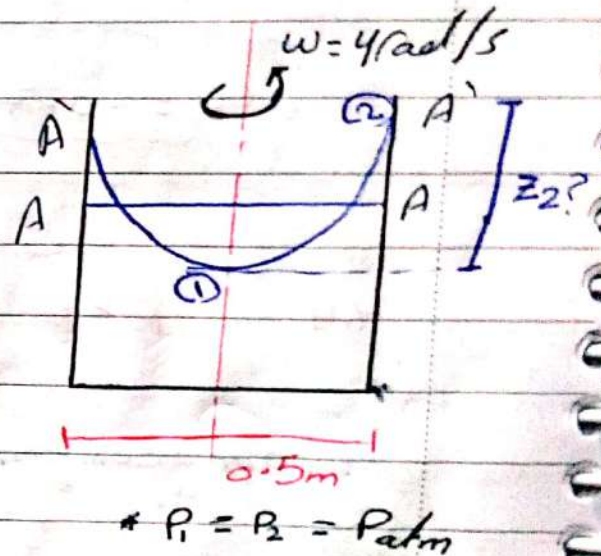 ω = 4rad/s
A` ② A`
A A Z2?
①
0.5m
* P1 = P2 = Patm